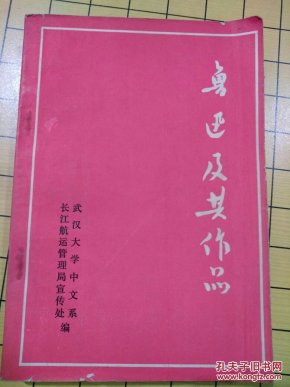 鲁迅及其作品
武汉大学中文系
长江航运管理局宣传处编
孔夫子旧书网